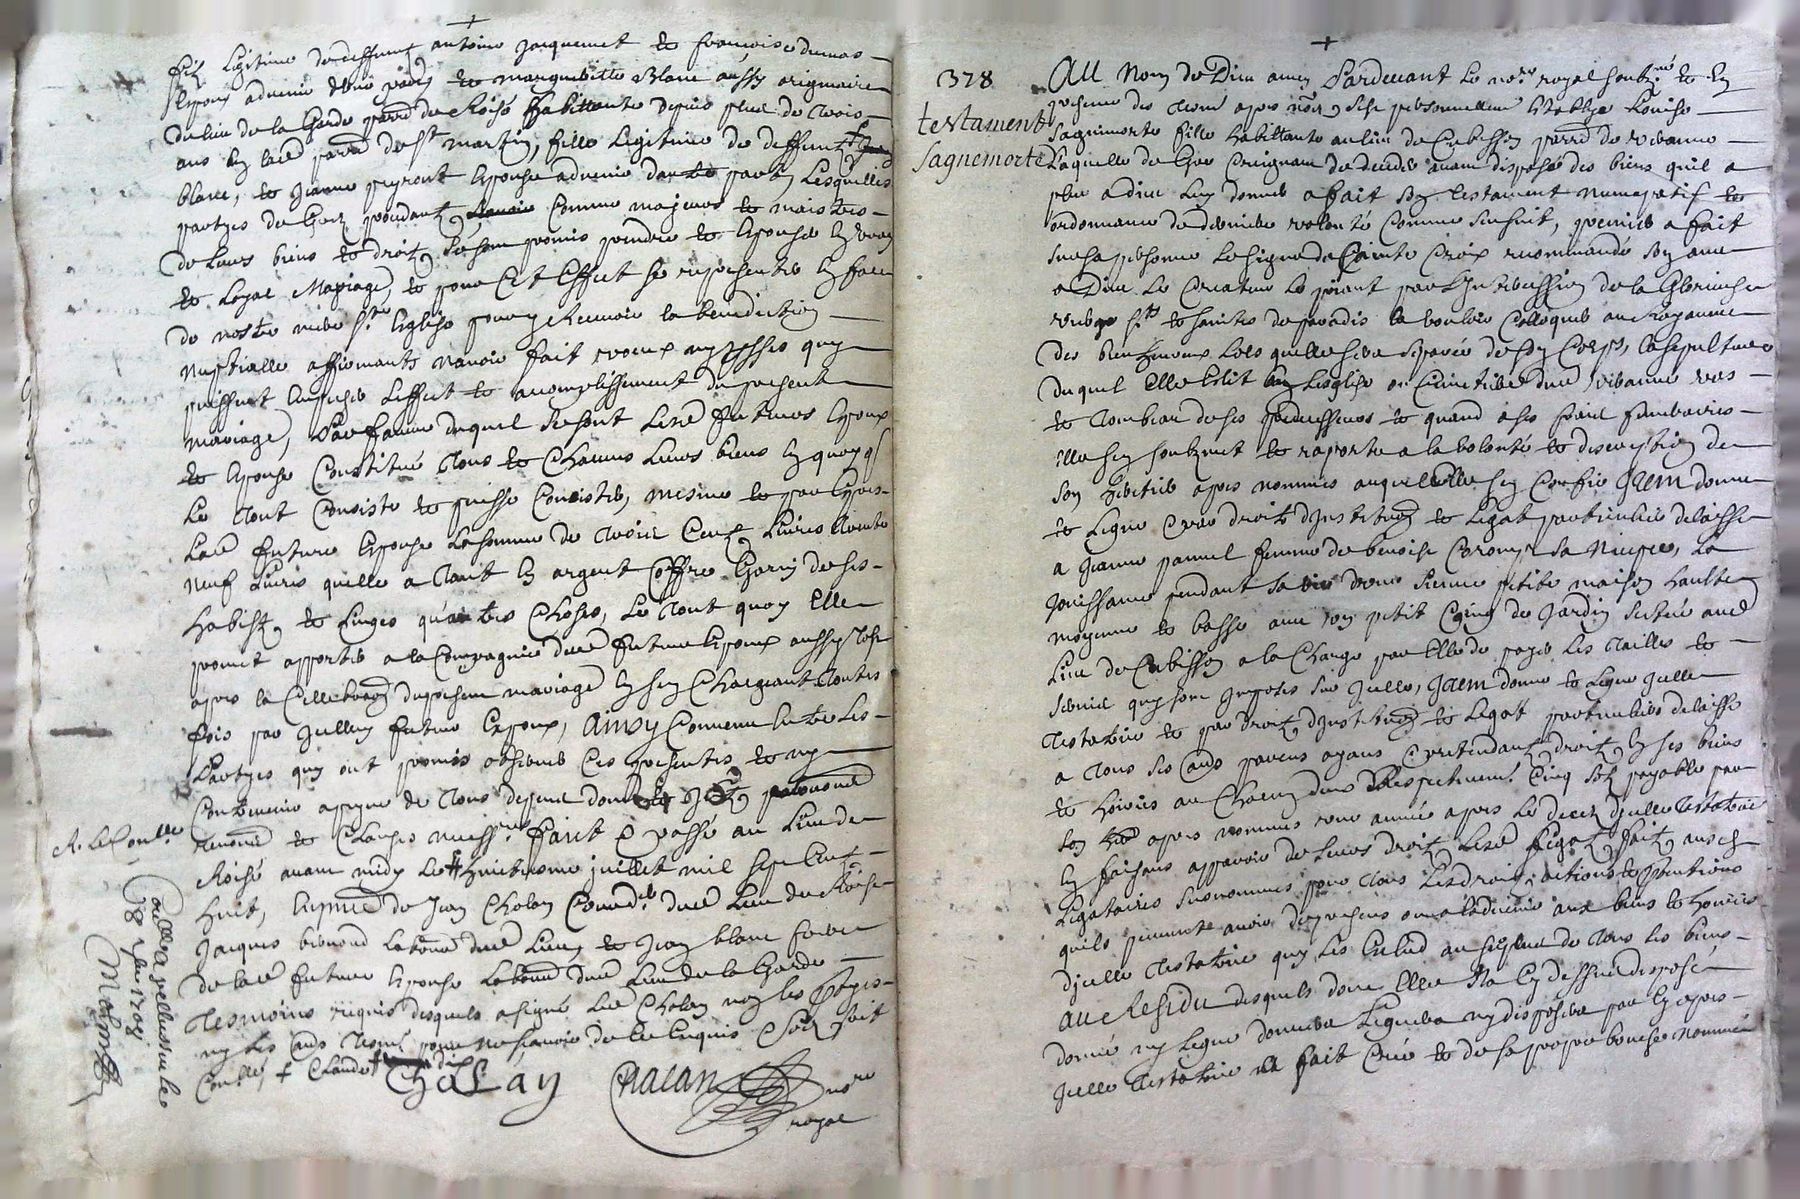 +
filz legitime de deffunt antoine Jacquemet et françoise dumas
d'une part et margueritte Blanc aussy originaire
du lieu de la Garde parre de Roisé habittante depuis plus de trois
ans en lad parre de st martin, fille legitime de deffunt Jean
blanc, et Jeanne peyront Espouse advenir dautre part Lesquelles
partyes de Gré comme majeurs et maistres
de leurs biens et droitz se sont promis prendre et Espouser en vray
et Loyal Mariage, et pour Cet Effect se representer en face
de nostre mere ste Esglise pour y Recevoir la benediction
nuptialle affirmants n'avoir fait voeux ny promesses quy
puissent Empescher Leffect et accomplissement du present
mariage, En faveur duquel se sont lesd futeurs Espoux
et Espouse Constitué Tous et Chacuns Leurs biens En quoy q
Le tout Consiste et puisse Consister, mesme et par Expres
Lad future Espouse La somme de Trois Centz Livres Trante
neuf Livres quelle a tant En argent Coffre Garny de ses
habitz et Linges qu'autres Choses, Le tout quoy Elle
promet apporter a la Compagnie dud futeur Espoux aussy tost
apres la Cellebraon du present mariage En sen Chargeant Toutes
fois par Jcelluy futeur Espoux, Ainsy Convenu Entre Les
Partyes quy ont promis observer Ces presentes et ny
Contrevenir a peyne de Tous despens
renoncé et Clauses necessres fait et passé au Lieu de
Roisé avant midy Le huictiesme juillet mil sept Cent
huit, En presence de Jean Chalan dud Lieu de Roisé
Jacques bernard Laboureur dud Lieu, et Jean blanc frere
de lad future Espouse Laboureur dud Lieu de la Garde
Tesmoins requis desquels a signé Led Chalan non les partyes
ny les autres Tesm pour ne sçavoir de ce Enquis Soit fait
Conllé + Claude +
Chalan
Chalan
nore
royal
Conllé a pellussin le
8 1708
378
testament
Sagnemorte
+
Au Nom de Dieu amen Pardevant Le nore royal soubzné et En
presence des Tesm apres nommés s'est personnellement Establye Louise
Sagnimorte fille habittante au lieu de Cubisson parre de Veranne
Laquelle de Gré Craignant de deceder avant disposé des biens quil a
pleu a dieu Luy donner a fait son Testament nuncupatif et
ordonnance de derniere volonté Comme s'ensuit, premier a fait
sur sa personne Le signe de la Sainte Croix recommandé son ame
a Dieu Le Createur Le priant par L'Intercession de la Glorieuse
vierge sts et saintes de paradis la vouloir Colloquer au Royaume
des bienheureux Lors quelle sera separée de son Corps, La sepulture
duquel Elle Eslit En Lesglise ou Cimetiere dud Veranne vas
et Tombeau de ses predecesseurs et quand a ses frais funeraires
Elle s'en soubzmet et raporte a la volonté et discretion de
son heritier apres nommé auquel Elle s'en Confie Item donne
et Legue par droit d'Institution et Legat particulier delaisse
a Jeanne pannel femme de benoist Coromp sa Niepce, La
Jouissance pendant sa vie d'une sienne petite maison haulte
moyenne et basse avec un petit Coing de Jardin scitué aud
Lieu de Cubisson a la Charge par Elle de payer Les Tailles et
servis quy sont Imposés sur Jcelle, Item donne et Legue Jcelle
Testatrice et par droit d'Institution et Legat particulier delaisse
a Tous ses autres parens ayans et pretendant droit En ses biens
et hoirie au Chacun deux Respectivement Cinq solz payable par
son her apres nommé une année apres Le decez d'Jcelle Testatrice
En faisant apparoir de Leurs droitz Lesd Legatz faitz ausd
Legataires susnommés pour Tous Lesdroitz actions et pretentions
quils peuvent avoir de present ou a ladvenir aux biens et hoirie
d'Jcelle Testatrice quy Les Exclud au surplus de Tous ses biens
Au Residu desquels dont Elle N'a Cy dessus disposé
donné ny Legué donnera Leguera ny disposera par Cy apres
Jcelle Testatrice a fait Creé et de sa propre bouche nommé